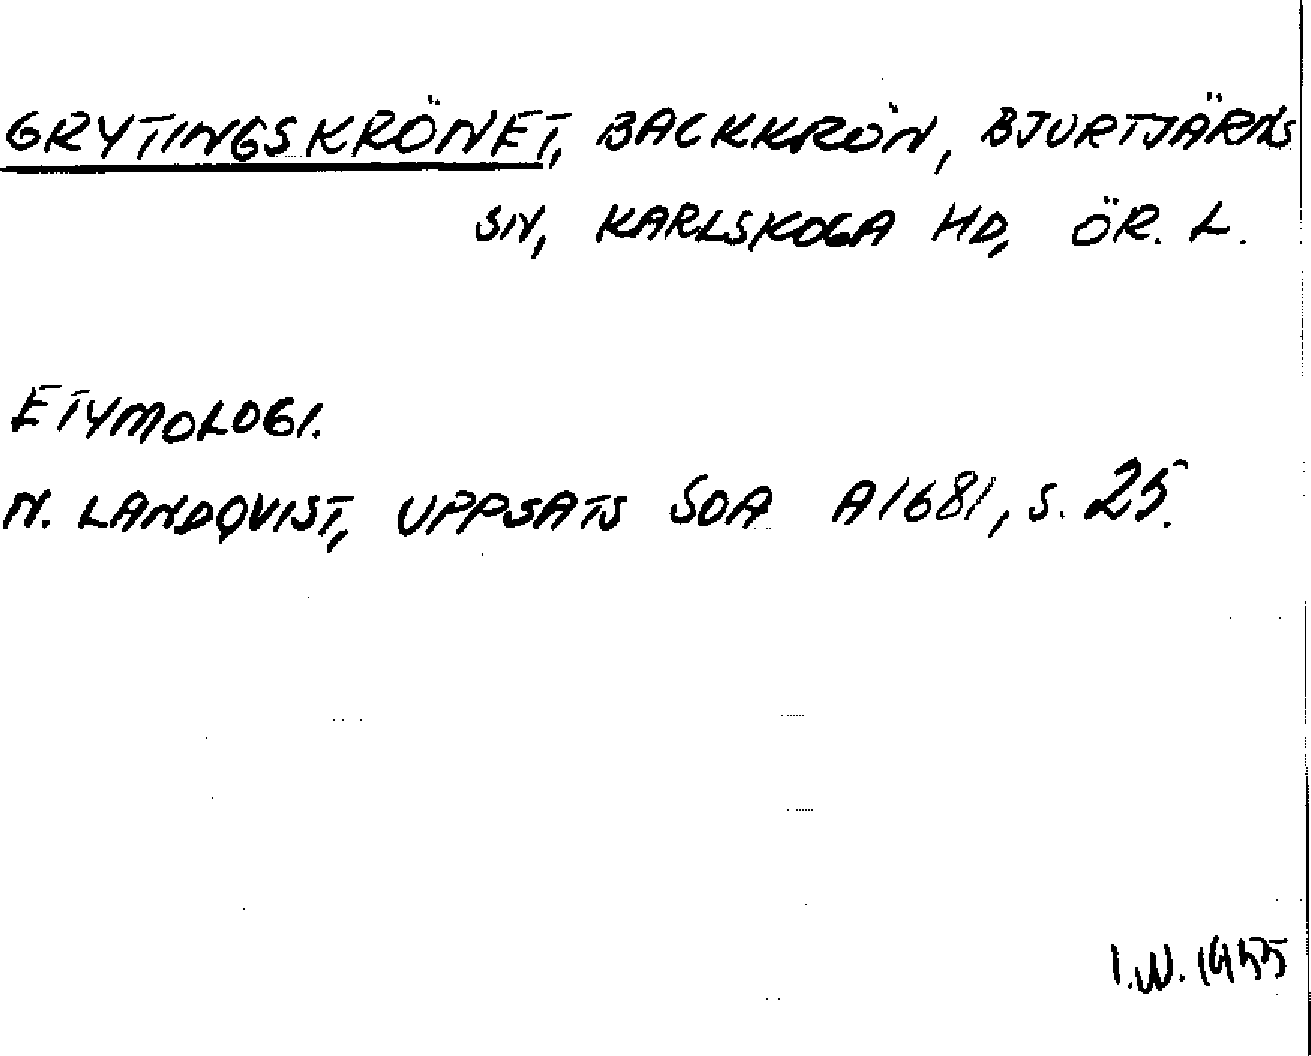 GRYTINGSKRÖNET, BACKKRÖN, BJURTJÄRNS
SN, KARLSKOGA HD, ÖR. L.
ETYMOLOGI.
N. LANDQVIST, UPPSATS SOA A1681, S. 25.
I.W. 1955